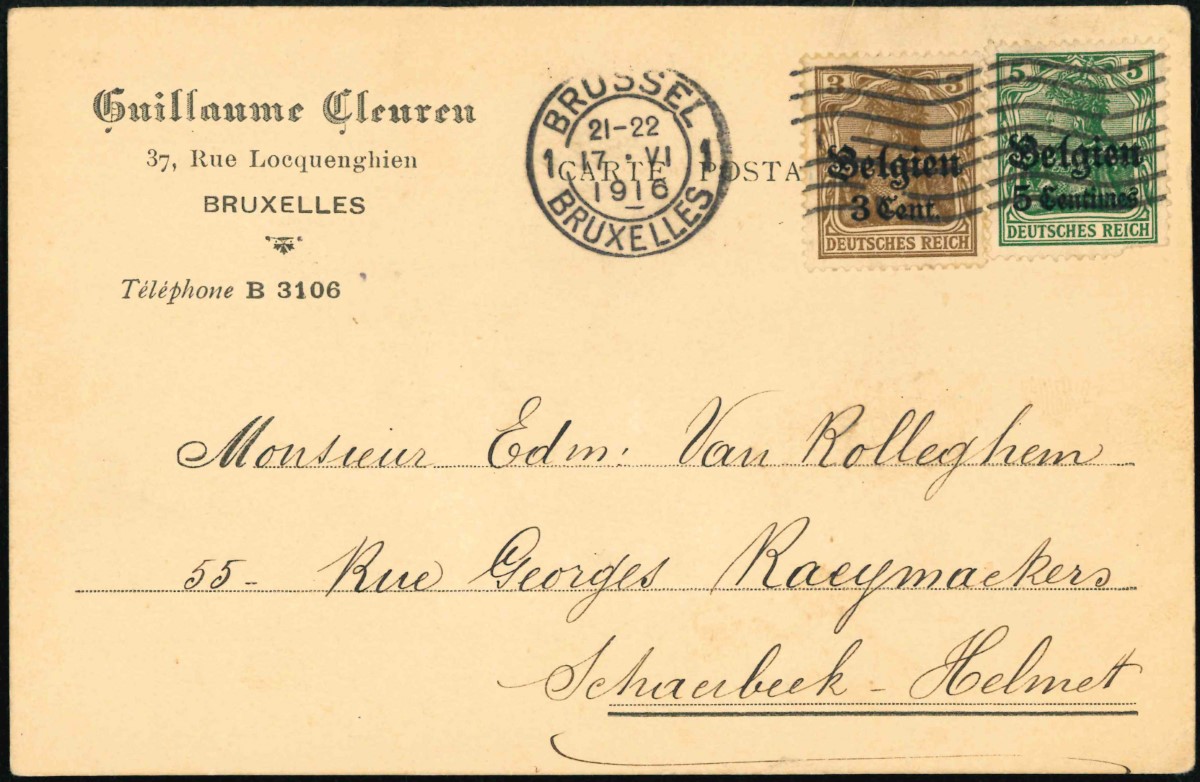 Guillaume Cleuren
37, Rue Locquenghien
BRUXELLES
Téléphone B 3106
BRUSSEL
21-22
1 17·VI 1
1916
BRUXELLES
CARTE POSTA
3 3
Belgien
3 Cent.
DEUTSCHES REICH
5 5
Belgien
5 Centimes
DEUTSCHES REICH
Monsieur Edm: Van Rolleghem
55- Rue Georges Raeymackers
Schaerbeek - Helmet